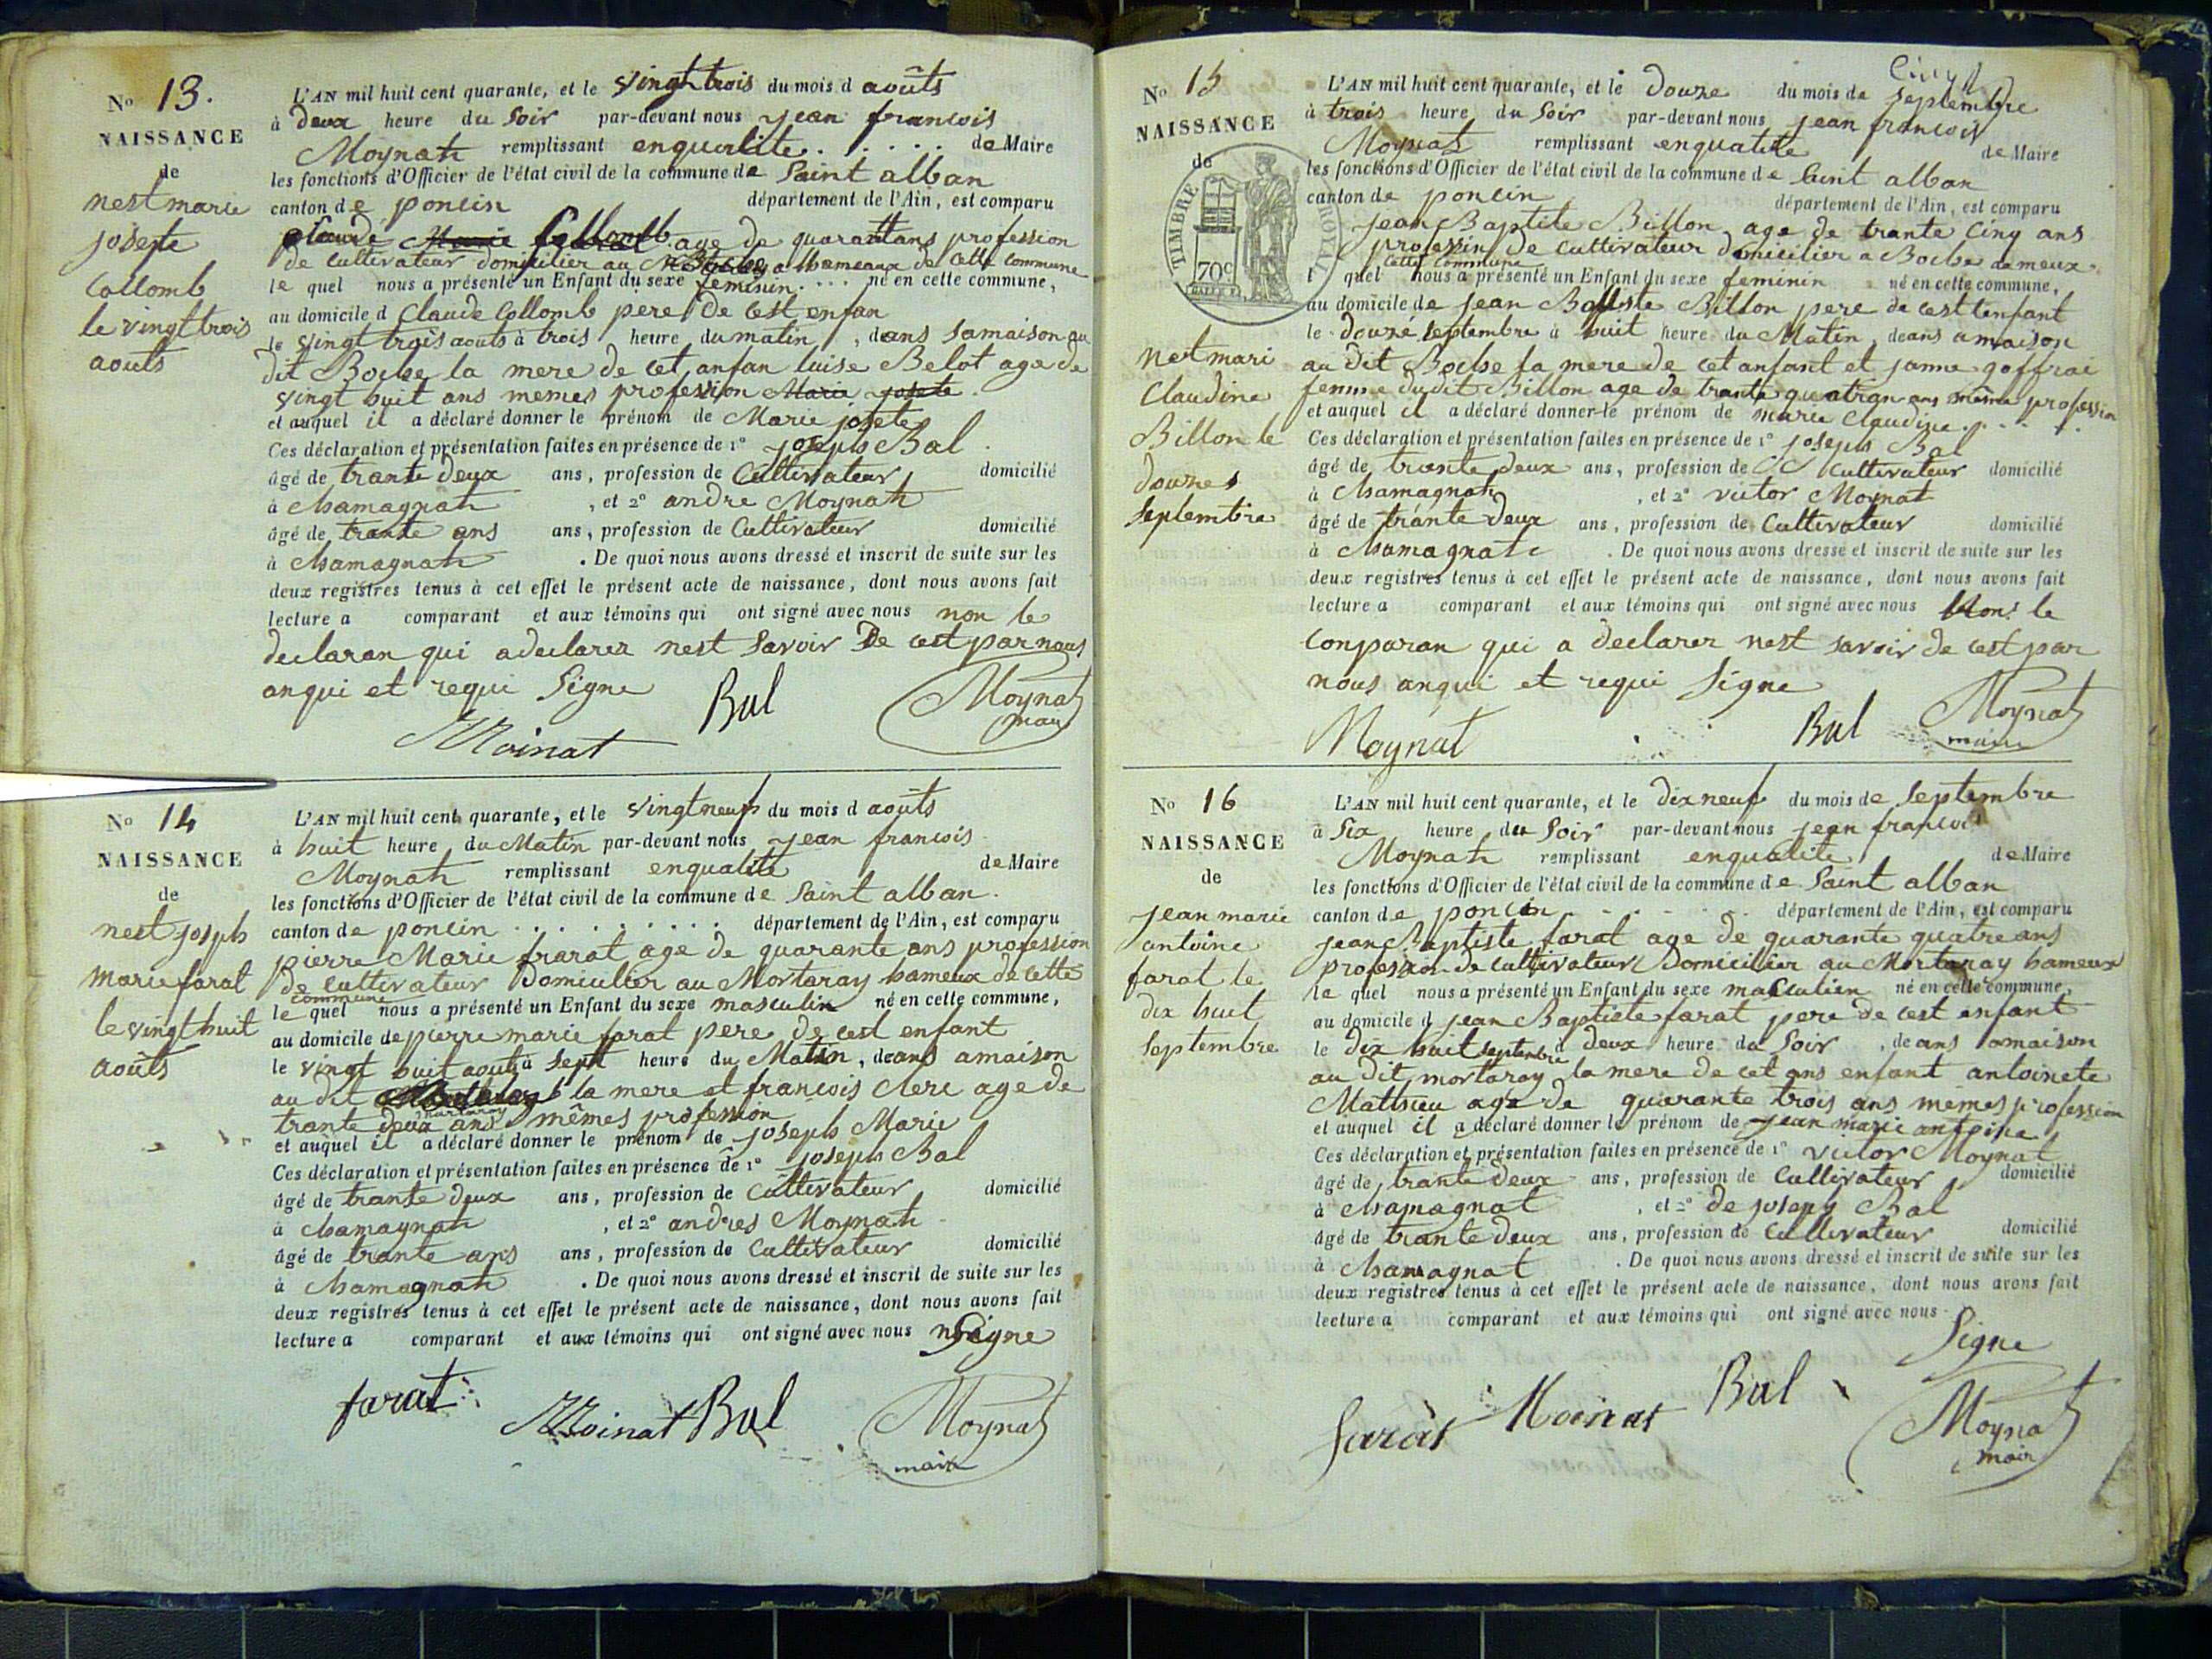 No 13.
NAISSANCE
de
nest marie
josepte
Collomb
le vingt trois
aouts
L'AN mil huit cent quarante, et le vingt trois du mois d aoûts
à deux heure du soir par-devant nous jean francois
Moynat remplissant enqualite . . . . . de Maire
les fonctions d'Officier de l'état civil de la commune de Saint alban
canton de poncin département de l'Ain, est comparu
Claude Marie Collomb age de quarantt ans profession
de cultivateur domicilier au hameaux de cette commune
le quel nous a présenté un Enfant du sexe feminin . . . né en cette commune,
au domicile d Claude Collomb pere de cest enfan
le vingt trois aouts à trois heure du matin, deans samaison au
dit Boche la mere de cet anfan luise Belot age de
vingt huit ans memes profession Marie josete
et auquel il a déclaré donner le prénom de Marie josete
Ces déclaration et présentation faites en présence de 1° joseph Bal
âgé de trante deux ans, profession de Cultivateur domicilié
à Chamagnat, et 2° andre Moynat
âgé de trante ans ans, profession de Cultivateur domicilié
à Chamagnat. De quoi nous avons dressé et inscrit de suite sur les
deux registres tenus à cet effet le présent acte de naissance, dont nous avons fait
lecture a comparant et aux témoins qui ont signé avec nous non le
declaran qui adeclarer nest savoir De cest par nous
anqui et requi Signe
Moinat Bal Moynat
maire
No 14
NAISSANCE
de
nest joseph
Marie farat
le vingt huit
aoûts
L'AN mil huit cent quarante, et le vingt neuf du mois d aoûts
à huit heure du Matin par-devant nous jean francois
Moynat remplissant enqualite de Maire
les fonctions d'Officier de l'état civil de la commune de Saint alban
canton de poncin . . . . . . . . . département de l'Ain, est comparu
pierre Marie frarat age de quarante ans profession
de cultivateur Domicilier au Mortaray hameux de cette
commune
le quel nous a présenté un Enfant du sexe masculin né en cette commune,
au domicile de pierre marie farat pere de cest enfant
le vingt huit aouts à sept heure du Matin, deans amaison
au dit la mere et francois clerc age de
trante deux ans mortaray mêmes profession
et auquel il a déclaré donner le prénom de joseph Marie
Ces déclaration et présentation faites en présence de 1° joseph Bal
âgé de trante deux ans, profession de Cultivateur domicilié
à Chamagnat, et 2° andres Moynat
âgé de trante ans ans, profession de Cultivateur domicilié
à Chamagnat. De quoi nous avons dressé et inscrit de suite sur les
deux registres tenus à cet effet le présent acte de naissance, dont nous avons fait
lecture a comparant et aux témoins qui ont signé avec nous Signe
farat Moinat Bal Moynat
maire
No 15
NAISSANCE
de
TIMBRE ROYAL
70c
nest mari
Claudine
Billon le
douzes
Septembre
L'AN mil huit cent quarante, et le douze du mois de Septembre
à trois heure du Soir par-devant nous jean francois
Moynat remplissant enqualite de Maire
les fonctions d'Officier de l'état civil de la commune de Saint alban
canton de poncin département de l'Ain, est comparu
jean Baptite Billon age de trante cinq ans
profession de cultivateur domicilier a Boche ameux
cette commune
l quel nous a présenté un Enfant du sexe feminin né en cette commune,
au domicile de jean Batiste Billon pere de cest tenfant
le douze septembre à huit heure du Matin, deans amaison
au dit Boche la mere de cet anfant et janne goffrai
femme dudit Billon age de trante quatran ans même profession
et auquel il a déclaré donner le prénom de marie claudine . . . .
Ces déclaration et présentation faites en présence de 1° joseph Bal
âgé de trante deux ans, profession de Cultivateur domicilié
à Chamagnat, et 2° victor Moynat
âgé de trante deux ans, profession de Cultivateur domicilié
à Chamagnat. De quoi nous avons dressé et inscrit de suite sur les
deux registres tenus à cet effet le présent acte de naissance, dont nous avons fait
lecture a comparant et aux témoins qui ont signé avec nous Non le
conparan qui a declarer nest savoir de cest par
nous anqui et requi signe
Moynat Bal Moynat
maire
No 16
NAISSANCE
de
jean marie
antoine
farat le
dix huit
septembre
L'AN mil huit cent quarante, et le dix neuf du mois de Septembre
à Six heure du Soir par-devant nous jean francois
Moynat remplissant enqualite de Maire
les fonctions d'Officier de l'état civil de la commune de Saint alban
canton de poncin . . . . . département de l'Ain, est comparu
jean Baptiste farat age de quarante quatre ans
profession de cultivateur Domicilier au Mortaray hameux
le quel nous a présenté un Enfant du sexe masculien né en cette commune,
au domicile d jean Baptiste farat pere de cest enfant
le dix huit septembre à deux heure du Soir, deans amaison
au dit mortaray la mere de cet ans enfant antoinete
Matthieu age de quarante trois ans memes profession
et auquel il a déclaré donner le prénom de jean marie antoine
Ces déclaration et présentation faites en présence de 1° victor Moynat
âgé de trante deux ans, profession de Cultivateur domicilié
à Chamagnat, et 2° de joseph Bal
âgé de trante deux ans, profession de Cultivateur domicilié
à Chamagnat. De quoi nous avons dressé et inscrit de suite sur les
deux registres tenus à cet effet le présent acte de naissance, dont nous avons fait
lecture a comparant et aux témoins qui ont signé avec nous
Signe
farat Moinat Bal Moynat
mair